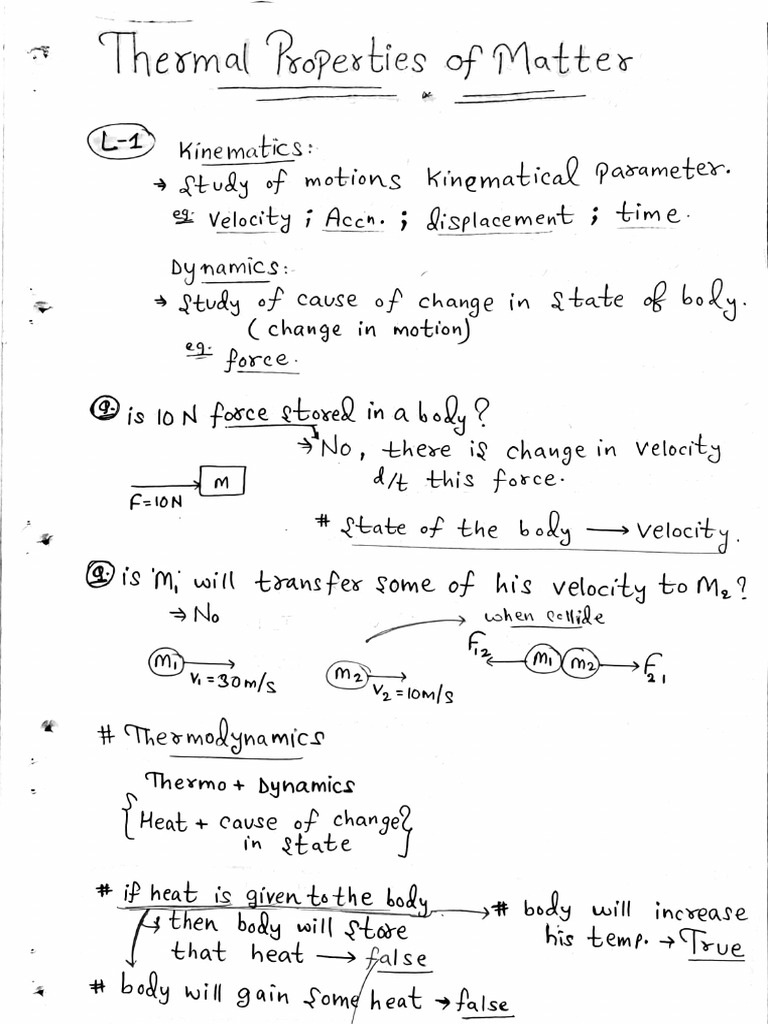 Thermal Properties of Matter
L-1
Kinematics:
→ Study of motions kinematical parameter.
eg: Velocity ; Accn. ; displacement ; time.
Dynamics:-
→ Study of cause of change in state of body.
(change in motion)
eg. force.
Q. is 10 N force stored in a body?
→ No, there is change in velocity
d/t this force.
F=10N M
# State of the body → velocity.
Q. is M1 will transfer some of his velocity to M2?
→ No
when collide
M1 V1=30m/s
M2 V2=10m/s
F12 M1 M2 F21
# Thermodynamics
Thermo + Dynamics
{Heat + cause of change
in state}
# if heat is given to the body → # body will increase
his temp. → True
↳ then body will store
that heat → false
# body will gain some heat → false